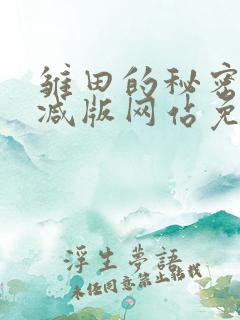 雏田的秘密
减版网佔免
浮生夢語
未经同意禁止转载